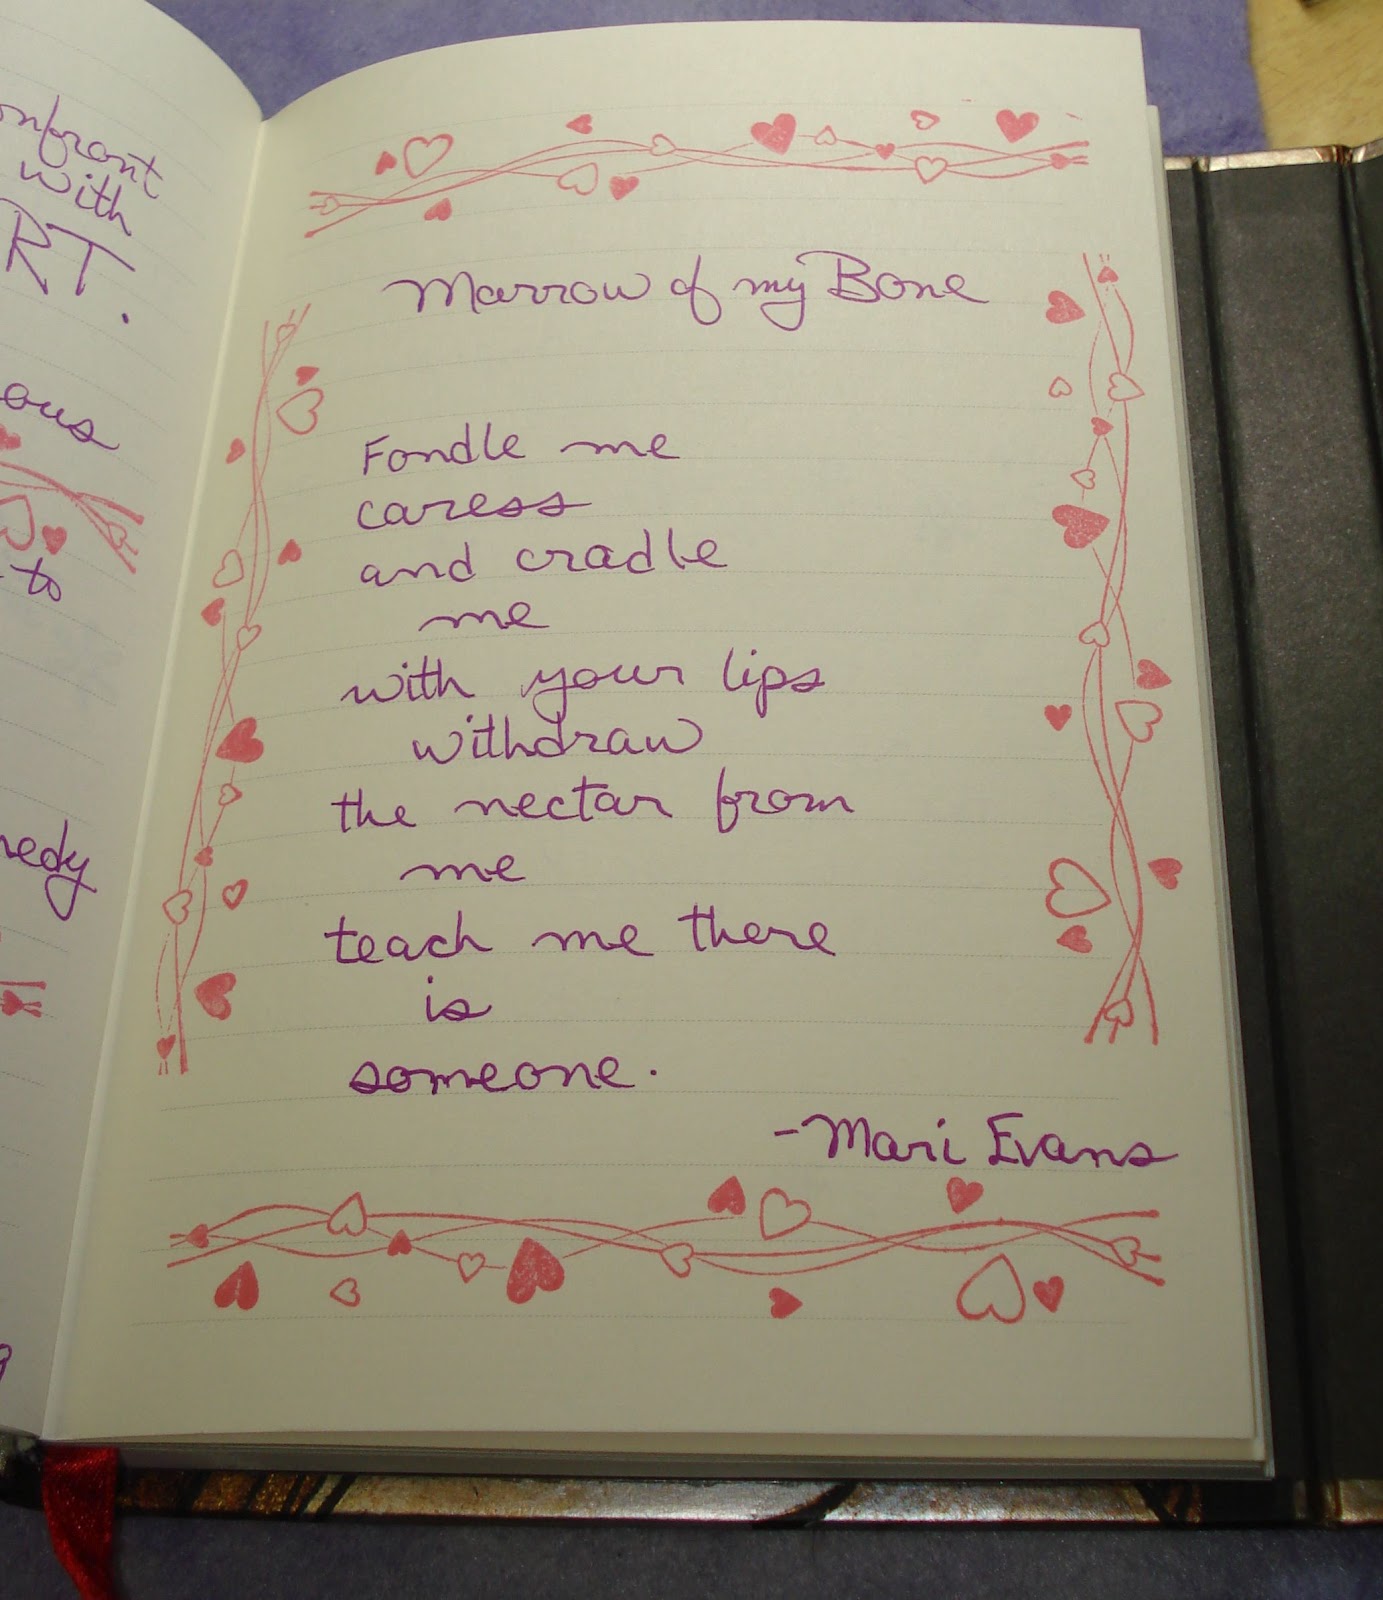 onfront
with
RT.
ous
to
nedy
Marrow of my Bone
Fondle me
caress
and cradle
me
with your lips
withdraw
the nectar from
me
teach me there
is
someone.
-Mari Evans